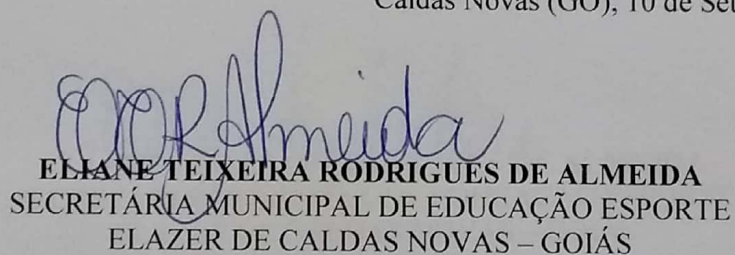 Caldas Novas (GO), 10 de Set
Almeida
ELIANE TEIXEIRA RODRIGUES DE ALMEIDA
SECRETÁRIA MUNICIPAL DE EDUCAÇÃO ESPORTE
ELAZER DE CALDAS NOVAS – GOIÁS